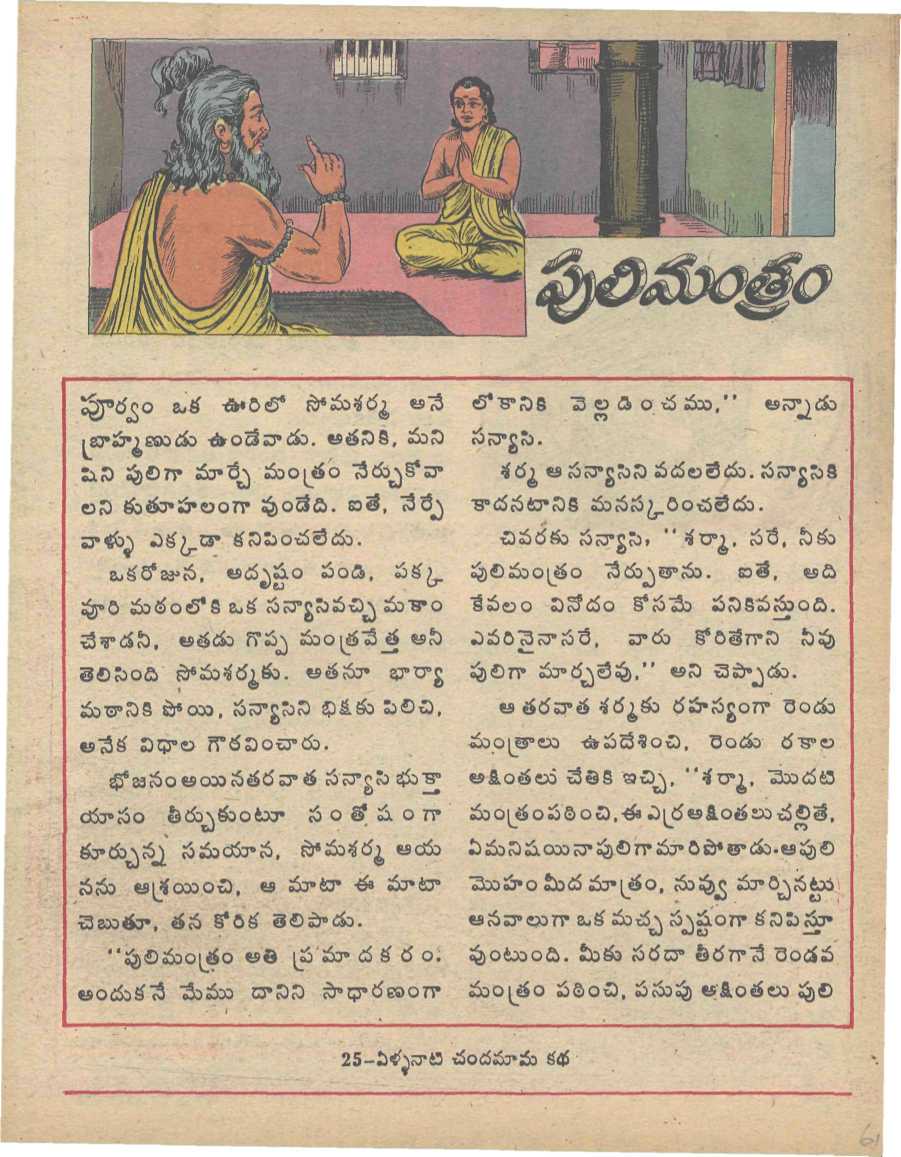 పులిమంత్రం
పూర్వం ఒక ఊరిలో సోమశర్మ అనే
బ్రాహ్మణుడు ఉండేవాడు. అతనికి, మని
షిని పులిగా మార్చే మంత్రం నేర్చుకోవా
లని కుతూహలంగా వుండేది. ఐతే, నేర్పే
వాళ్ళు ఎక్కడా కనిపించలేదు.
ఒకరోజున, అదృష్టం పండి, పక్క
వూరి మఠంలోకి ఒక సన్యాసివచ్చి మకాం
చేశాడనీ, అతడు గొప్ప మంత్రవేత్త అనీ
తెలిసింది సోమశర్మకు. అతనూ భార్యా
మఠానికి పోయి, సన్యాసిని భిక్షకు పిలిచి,
అనేక విధాల గౌరవించారు.
భోజనంఅయినతరవాత సన్యాసి భుక్తా
యాసం తీర్చుకుంటూ సంతోషంగా
కూర్చున్న సమయాన, సోమశర్మ ఆయ
నను ఆశ్రయించి, ఆ మాటా ఈ మాటా
చెబుతూ, తన కోరిక తెలిపాడు.
"పులిమంత్రం అతి ప్రమాదకరం.
అందుకనే మేము దానిని సాధారణంగా
లోకానికి వెల్లడించము," అన్నాడు
సన్యాసి.
శర్మ ఆ సన్యాసిని వదలలేదు. సన్యాసికి
కాదనటానికి మనస్కరించలేదు.
చివరకు సన్యాసి, "శర్మా, సరే, నీకు
పులిమంత్రం నేర్పుతాను. ఐతే, అది
కేవలం వినోదం కోసమే పనికివస్తుంది.
ఎవరినైనాసరే, వారు కోరితేగాని నీవు
పులిగా మార్చలేవు," అని చెప్పాడు.
ఆ తరవాత శర్మకు రహస్యంగా రెండు
మంత్రాలు ఉపదేశించి, రెండు రకాల
అక్షింతలు చేతికి ఇచ్చి, "శర్మా, మొదటి
మంత్రంపఠించి,ఈ ఎర్రఅక్షింతలు చల్లితే,
ఏమనిషయినాపులిగామారిపోతాడు. ఆపులి
మొహంమీద మాత్రం, నువ్వు మార్చినట్టు
ఆనవాలుగా ఒక మచ్చ స్పష్టంగా కనిపిస్తూ
వుంటుంది. మీకు సరదా తీరగానే రెండవ
మంత్రం పఠించి, పసుపు అక్షింతలు పులి
25-ఏళ్ళనాటి చందమామ కథ
61